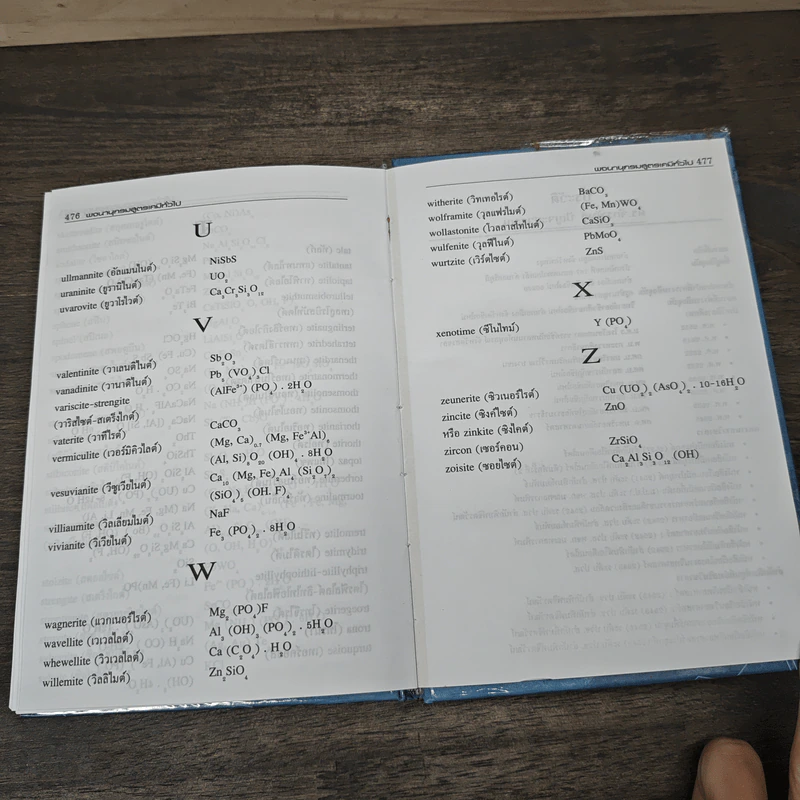 476 พจนานุกรมสูตรเคมีทั่วไป
U
ullmannite (อัลแมนไนต์) NiSbS
uraninite (ยูรานิไนต์) UO₂
uvarovite (ยูวาโรไวต์) Ca₃Cr₂Si₃O₁₂
V
valentinite (วาเลนติไนต์) Sb₂O₃
vanadinite (วานาดิไนต์) Pb₅(VO₄)₃Cl
variscite-strengite (AlFe³⁺) (PO₄) . 2H₂O
(วาริสไซต์-สเตร็งไกต์)
vaterite (วาทีไรต์) CaCO₃
vermiculite (เวอร์มิคิวไลต์) (Mg, Ca)₀.₇ (Mg, Fe³⁺Al)₆
(Al, Si)₈O₂₀ (OH)₄ . 8H₂O
vesuvianite (วีซูเวียไนต์) Ca₁₀ (Mg, Fe)₂Al₄ (Si₂O₇)₂
(SiO₄)₅ (OH. F)₄
villiaumite (วิลเลียมไมต์) NaF
vivianite (วิเวียไนต์) Fe₃ (PO₄)₂ . 8H₂O
W
wagnerite (แวกเนอร์ไรต์) Mg₂ (PO₄)F
wavellite (เวเวลไลต์) Al₃ (OH)₃ (PO₄)₂ . 5H₂O
whewellite (วิวเวลไลต์) Ca (C₂O₄) . H₂O
willemite (วิลลิไมต์) Zn₂SiO₄
พจนานุกรมสูตรเคมีทั่วไป 477
witherite (วิทเทอไรต์) BaCO₃
wolframite (วุลแฟรไมต์) (Fe, Mn)WO₄
wollastonite (โวลลาสไทไนต์) CaSiO₃
wulfenite (วุลฟีไนต์) PbMoO₄
wurtzite (เวิร์ตไซต์) ZnS
X
xenotime (ซีโนไทม์) Y (PO₄)
Z
zeunerite (ซิวเนอร์ไรต์) Cu (UO₂)₂ (AsO₄)₂ . 10-16H₂O
zincite (ซิงค์ไซต์) ZnO
หรือ zinkite (ซิงไคต์)
zircon (เซอร์คอน) ZrSiO₄
zoisite (ซอยไซต์) Ca₂Al₃Si₃O₁₂ (OH)